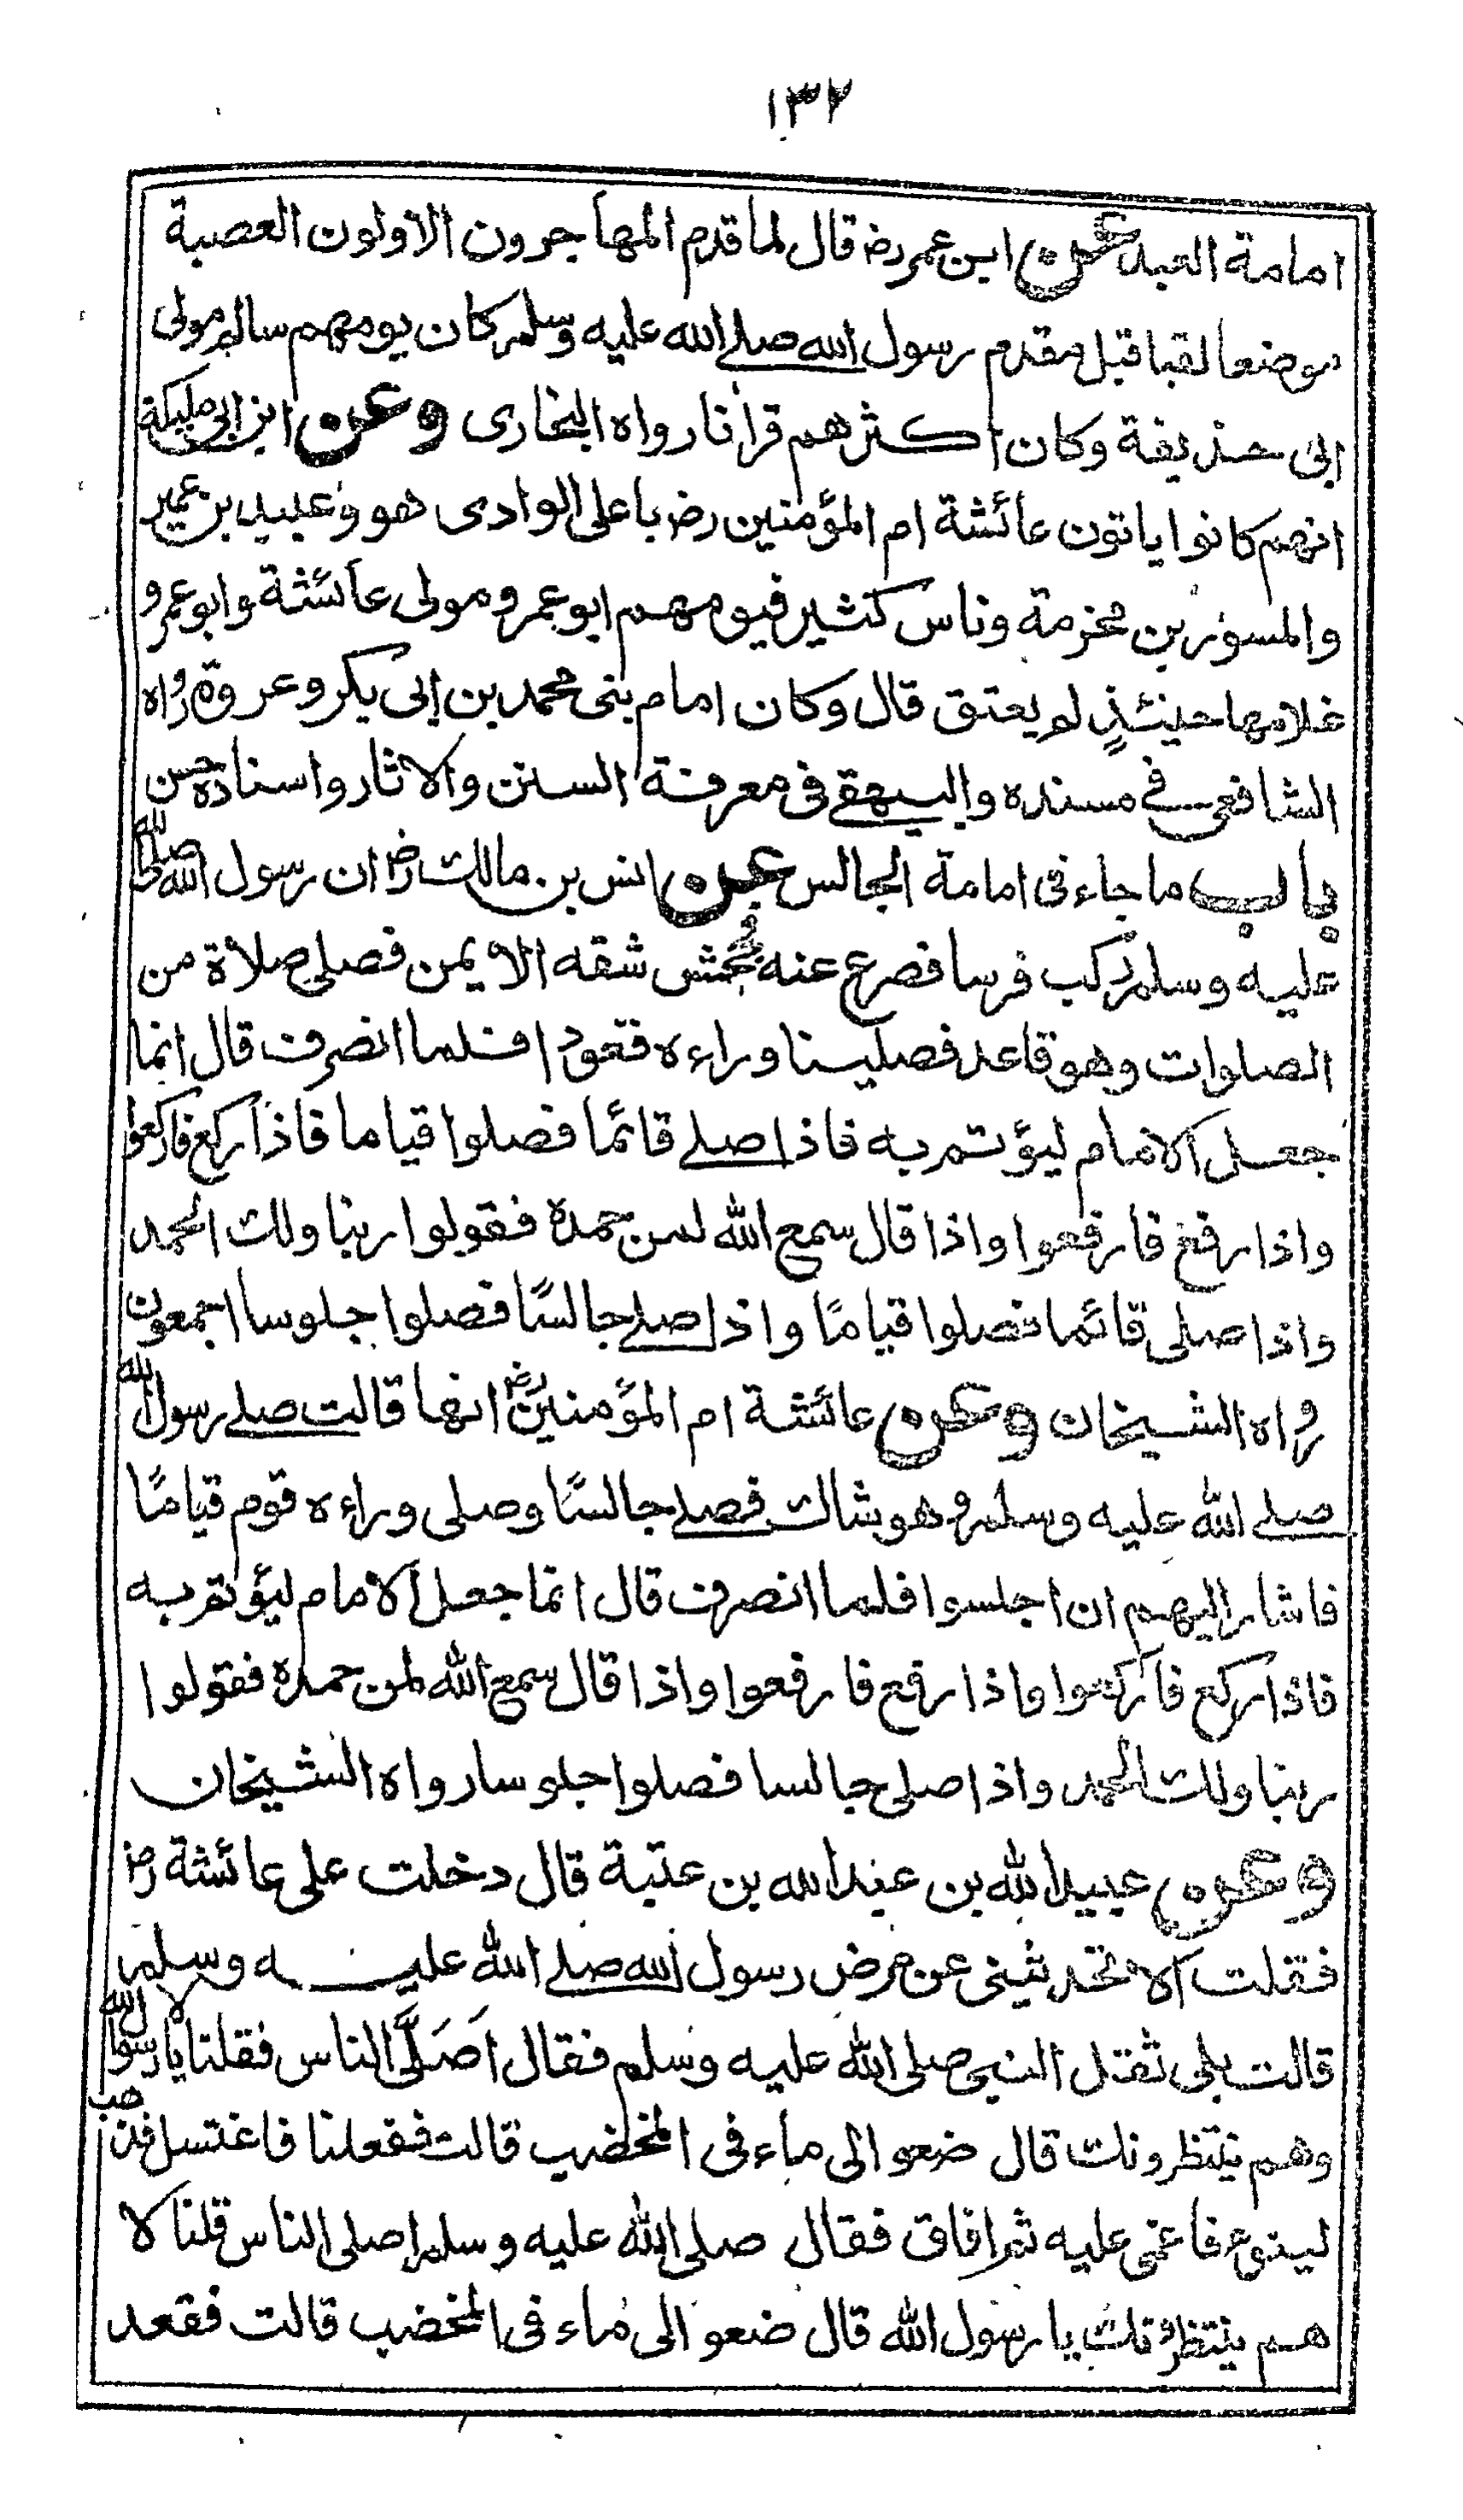 ١٣٢
امامة العبد عن ابن عمر رض قال لما قدم المهاجرون الاولون العصبة
موضعا لقبا قبل مقدم رسول الله صلے الله عليه وسلم كان يومهم سالم مولى
ابى حذيفة وكان اكثرهم قرانا رواه البخارى وعن ابن ابى مليكة
انهم كانوا ياتون عائشة ام المؤمنين رض باعلى الوادى هو وعبيد بن عمير
والمسور بن مخرمة وناس كثير فيومهم ابو عمرو مولى عائشة وابو عمرو
غلامها حينئذٍ لم يعتق قال وكان امام بنى محمد بن ابى بكر وعروة رواه
الشافعى فے مسنده والبيهقے فى معرفة السنن والاثار واسناده حسن
باب ما جاء فى امامة الجالس عن انس بن مالك رض ان رسول الله صلى الله
عليه وسلم ركب فرسا فصرع عنه فجحش شقه الايمن فصلى صلاة من
الصلوات وهو قاعد فصلينا وراءه قعودا فلما انصرف قال انما
جعل الامام ليؤتم به فاذا صلے قائما فصلوا قياما فاذا ركع فاركعوا
واذا رفع فارفعوا واذا قال سمع الله لمن حمده فقولوا ربنا ولك الحمد
واذا صلى قائما فصلوا قيامًا واذا صلے جالسًا فصلوا جلوسا اجمعون
رواه الشيخان وعن عائشة ام المؤمنين رض انها قالت صلے رسول الله
صلے الله عليه وسلم وهو شاك فصلے جالسًا وصلى وراءه قوم قيامًا
فاشار اليهم ان اجلسوا فلما انصرف قال انما جعل الامام ليؤتم به
فاذا ركع فاركعوا واذا رفع فارفعوا واذا قال سمع الله لمن حمده فقولوا
ربنا ولك الحمد واذا صلى جالسا فصلوا جلوسا رواه الشيخان
وعن عبيد الله بن عبد الله بن عتبة قال دخلت على عائشة رض
فقلت الا تحدثينى عن مرض رسول الله صلے الله عليه وسلم
قالت بلى ثقل النبى صلى الله عليه وسلم فقال اَصَلَّى الناس فقلنا لا يا رسول الله
وهم ينتظرونك قال ضعوا لى ماء فى المخضب قالت ففعلنا فاغتسل فذهب
لينوء فاغمى عليه ثم افاق فقال صلى الله عليه وسلم اصلى الناس قلنا لا
هم ينتظرونك يا رسول الله قال ضعوا لى ماء فى المخضب قالت فقعد